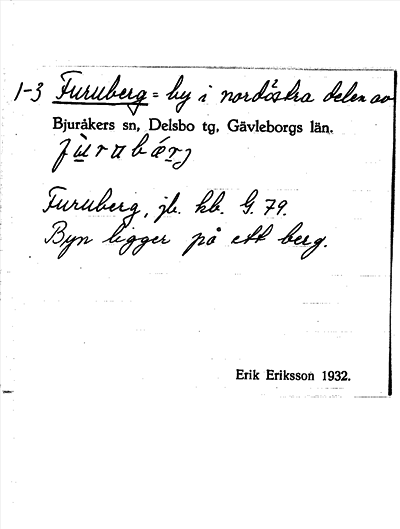 1-3 Furuberg = by i nordöstra delen av
Bjuråkers sn, Delsbo tg, Gävleborgs län.
Furuberg, jb. kb. G. 79.
Byn ligger på ett berg.
Erik Eriksson 1932.